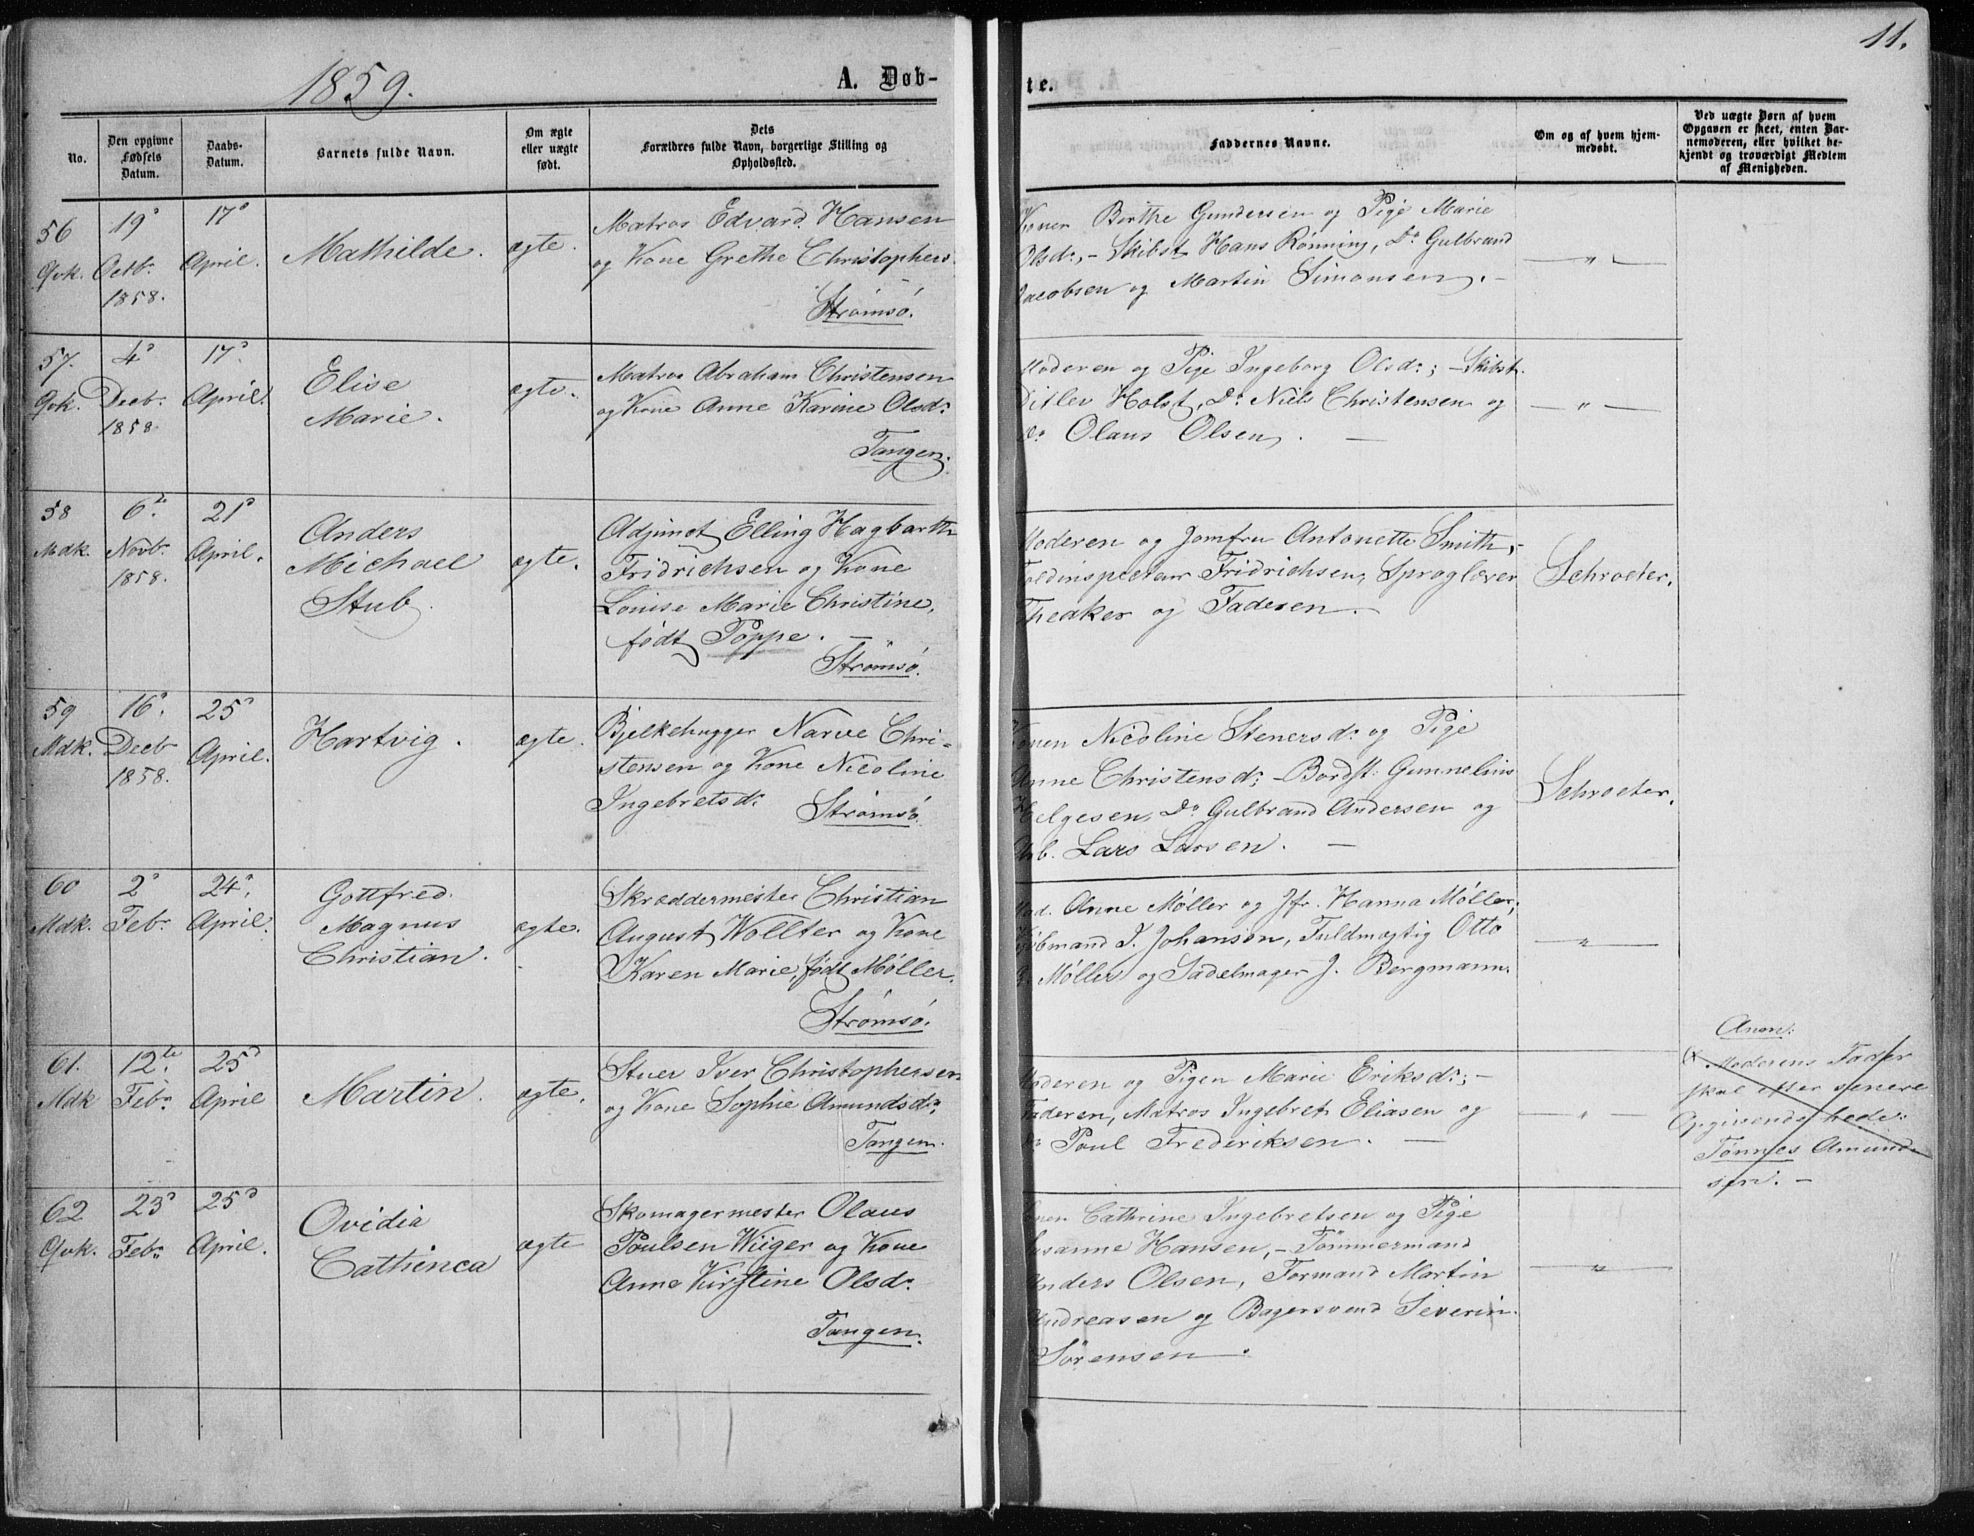 11.
1859.
A. Døb-
te.
No.
Den opgivne
Fødsels
Datum.
Daabs-
Datum.
Barnets fulde Navn.
Om ægte
eller uægte
født.
Dets
Forældres fulde Navn, borgerlige Stilling og
Opholdssted.
Faddernes Navne.
Om og af hvem hjem-
medøbt.
Ved uægte Børn af hvem
Opgaven er skeet, enten Bar-
nemoderen, eller hvilket be-
kjendt og troværdigt Medlem
af Menigheden.
56
Qvk.
19d
Octbr.
1858.
17d
April.
Mathilde.
ægte.
Matros Edvard Hansen
og Kone Grethe Christophers.
Strømsø.
Konen Birthe Gundersen og Pige Marie
Olsdr, - Skibst. Hans Rønning, Do Gulbrand
Jacobsen og Martin Simonsen. -
— " —
57.
Qvk.
4d
Decbr.
1858.
17d
April.
Elise
Marie.
ægte.
Matros Abraham Christensen
og Kone Anne Karine Olsdr.
Tangen.
Moderen og Pige Ingeborg Olsdr; - Skibst.
Ditlev Holst, Do Niels Christensen og
Do Olaus Olsen. —
— " —
58
Mdk.
6te
Novbr.
1858.
21d
April.
Anders
Michael
Stub.
ægte.
Adjunct Elling Hagbarth
Fridrichsen og Kone
Louise Marie Christine,
født Poppe. —
Strømsø.
Moderen og Jomfru Antonette Smith, -
Toldinspecteur Fridrichsen, Sproglærer
Theaker og Faderen. -
Schroeter.
59
Mdk.
16d.
Decb
1858.
25d
April.
Hartvig.
ægte.
Bjelkehugger Narve Chri-
stensen og Kone Nicoline
Ingebretsdr.
Strømsø.
Konen Nicoline Stenersdr og Pige
Anne Christensdr; - Bordst: Gunnelius
Helgesen, Do Gulbrand Andersen og
Arb. Lars Larsen. —
Schroeter.
60
Mdk.
2d
Febr.
24d.
April.
Gottfred
Magnus
Christian.
ægte.
Skræddermester Christian
August Wollter og Kone
Karen Marie, født Møller.
Strømsø.
Mad. Anne Møller og Jfr. Hanna Møller,
Kjøbmand J. Johanson, Fuldmægtig Otto
Møller og Sadelmager J. Bergmann.
— " —
61.
Mdk
12te.
Febr.
25d
April
Martin.
ægte.
Stuer Iver Christophersen
og Kone Sophie Amundsdr,
Tangen.
Moderen og Pigen Marie Eriksdr; -
Faderen, Matros Ingebret Eliasen og
Do Poul Frederiksen. —
— " —
Anm:
Moderens Fader
skal efter senere
Opgivende hede:
Tønnes Amund-
sen. -
62
Qvk.
23d
Febr.
25d
April.
Ovidia
Cathinca
ægte
Skomagermester Olaus
Poulsen Wiiger og Kone
Anne Kirstine Olsdr.
Tangen.
Konen Cathrine Ingebretsen og Pige
Susanne Hansen, - Tømmermand
Anders Olsen, Formand Martin
Andreasen og Bagersvend Severin
Sørensen.
— " —